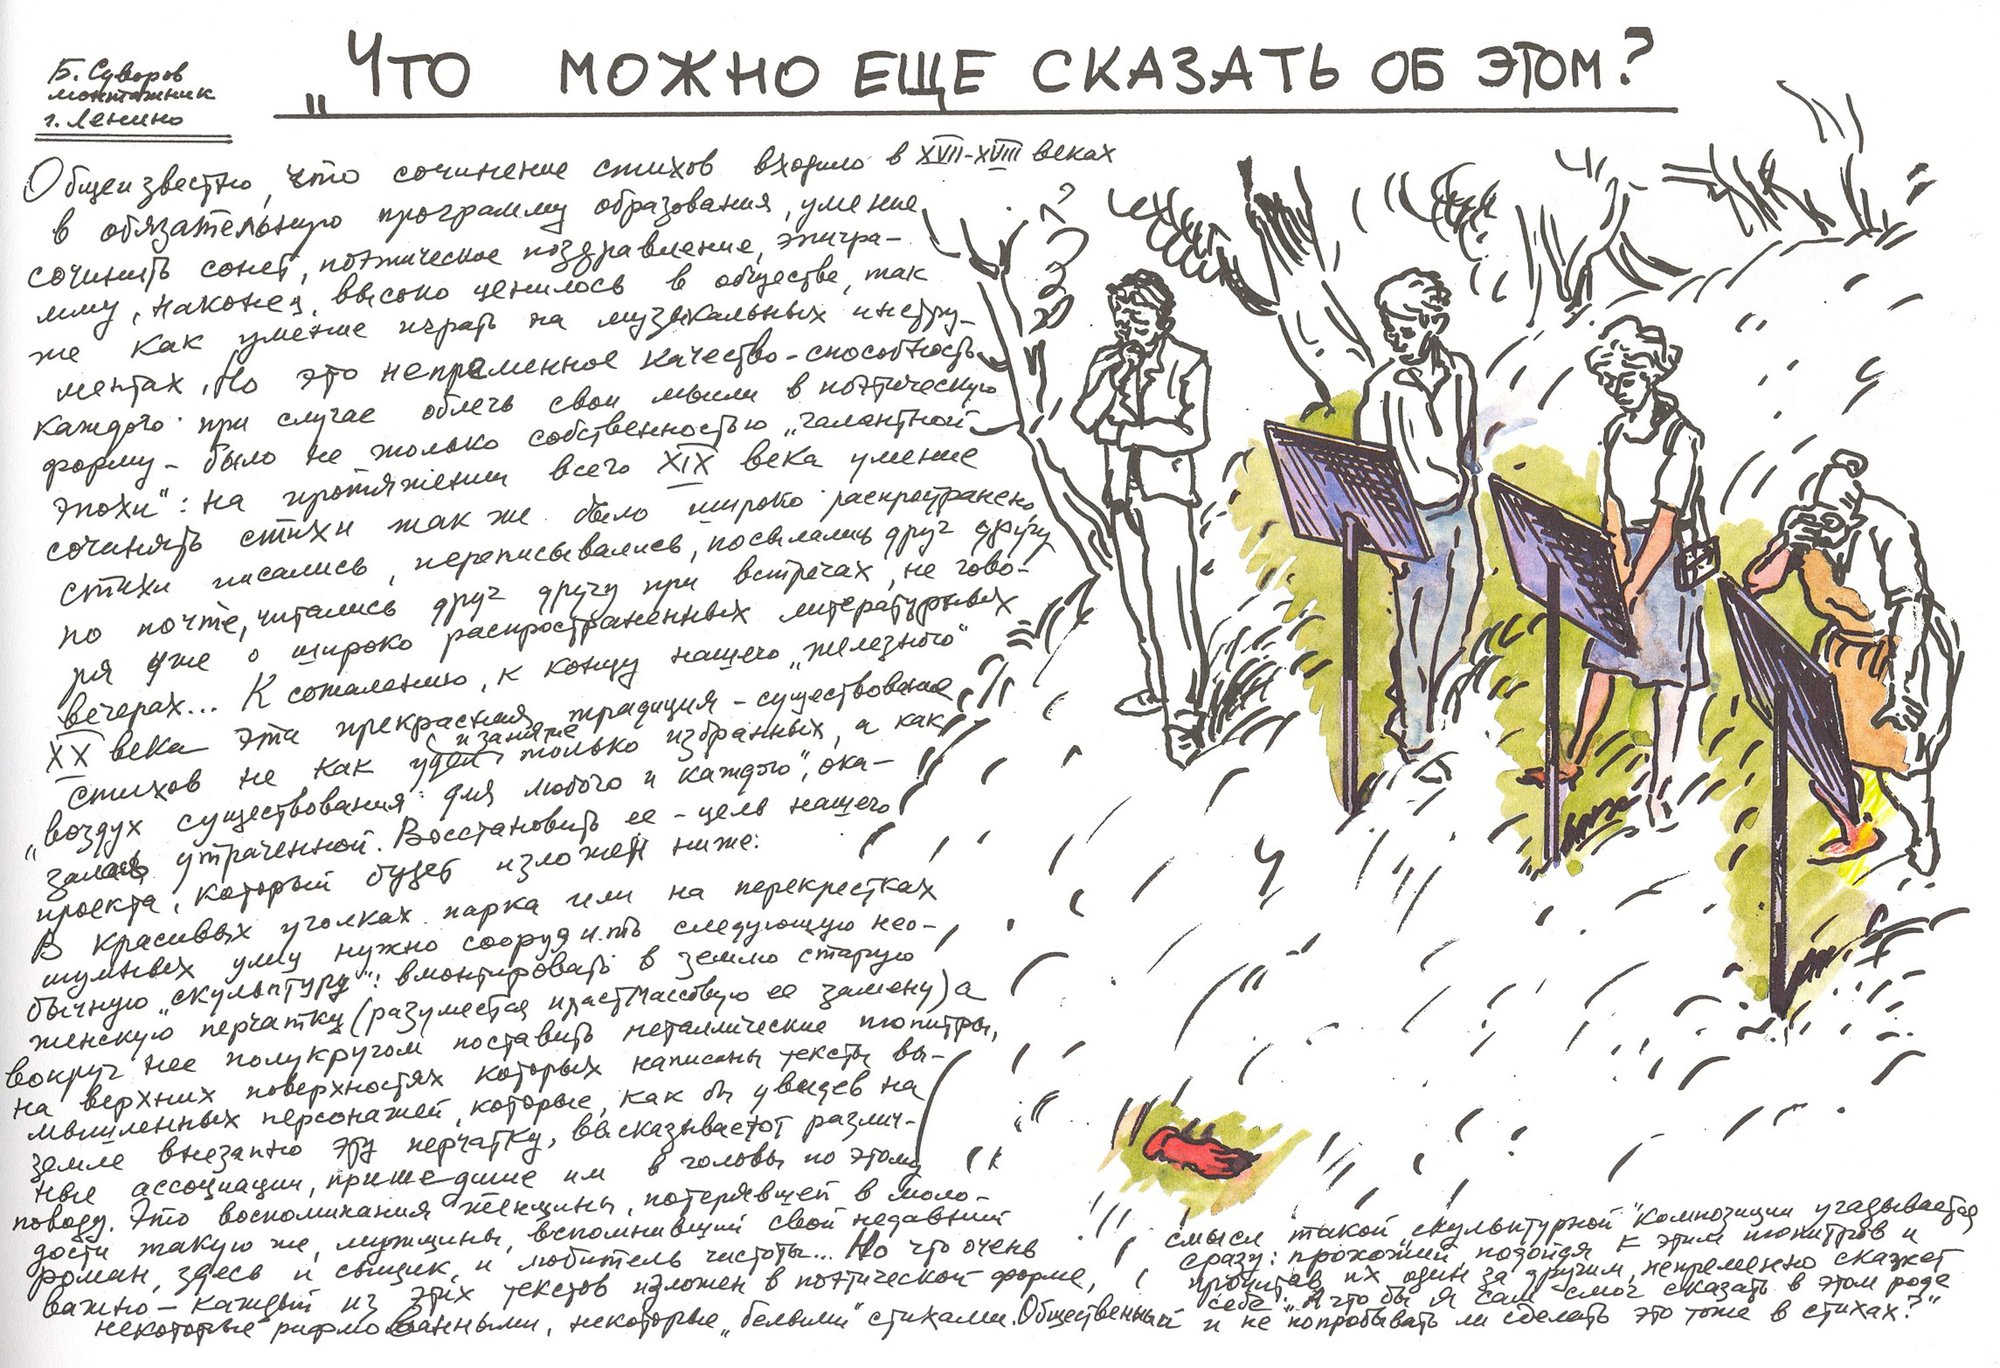 Б. Суворов
монтажник
г. Ленино
„Что можно еще сказать об этом?
Общеизвестно, что сочинение стихов входило в XVII-XVIII веках
в обязательную программу образования, умение
сочинить сонет, поэтическое поздравление, эпигра-
мму, наконец, высоко ценилось в обществе, так
же как умение играть на музыкальных инстру-
ментах. Но это непременное качество - способность
каждого при случае облечь свои мысли в поэтическую
форму - было не только собственностью „галантной
эпохи": на протяжении всего XIX века умение
сочинять стихи также было широко распространено
стихи писались, переписывались, посылались друг другу
по почте, читались друг другу при встречах, не гово-
ря уже о широко распространенных литературных
вечерах... К сожалению, к концу нашего „железного"
XX века эта прекрасная традиция - существование
стихов не как удел и занятие только избранных, а как
„воздух существования" для любого и каждого", ока-
залась утраченной. Восстановить ее - цель нашего
проекта, который будет изложен ниже:
В красивых уголках парка или на перекрестках
шумных улиц нужно соорудить следующую нео-
бычную „скульптуру": вмонтировать в землю старую
женскую перчатку (разуместся пластмассовую ее замену) а
вокруг нее полукругом поставить металлические пюпитры,
на верхних поверхностях которых написаны тексты вы-
мышленных персонажей, которые, как бы увидев на
земле внезапно эту перчатку, высказывают различ-
ные ассоциации, пришедшие им в головы по этому
поводу. Это воспоминания женщины, потерявшей в моло-
дости такую же, мужчины, вспомнивший свой недавний
роман, здесь и сыщик, и любитель чистоты... Но что очень
важно - каждый из этих текстов изложен в поэтической форме,
некоторые рифмованными, некоторые „белыми" стихами. Общественный
смысл такой „скульптурной" композиции угадывается
сразу: прохожий, подойдя к этим пюпитров и
прочитав их один за другим, непременно скажет
себе: „А что бы я сам смог сказать в этом роде
и не попробывать ли сделать это тоже в стихах?"